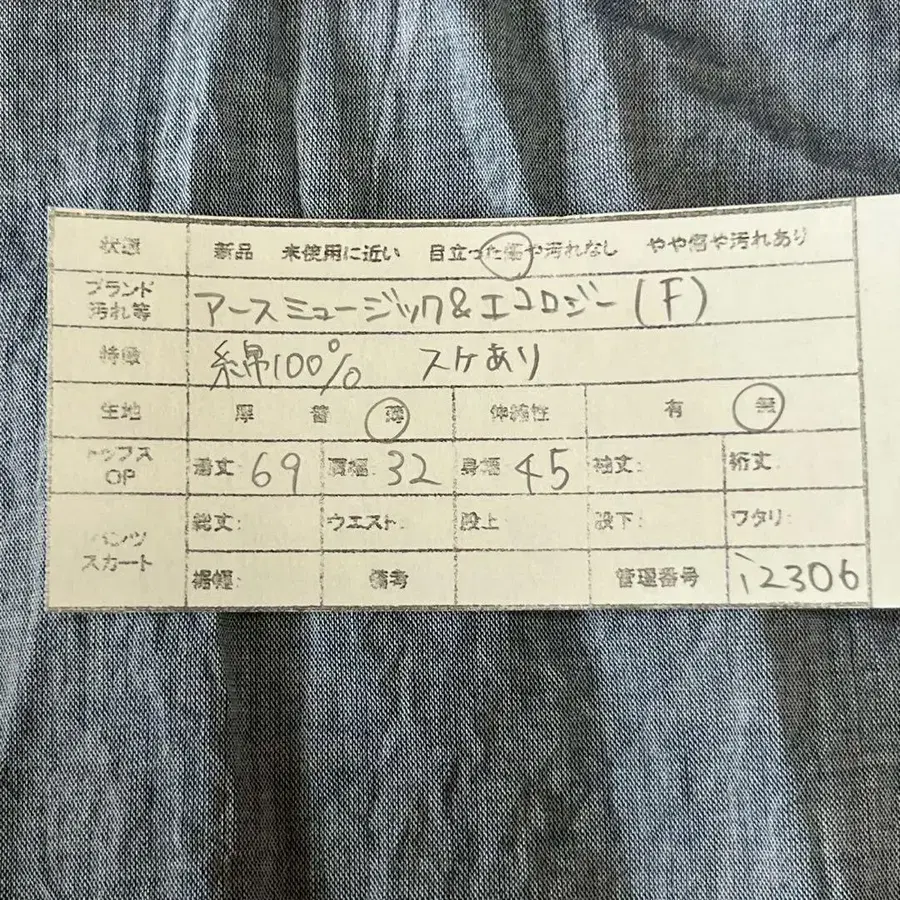 状態 新品 未使用に近い 目立った傷や汚れなし やや傷や汚れあり
ブランド 汚れ等 アースミュージック&エコロジー(F)
特徴 綿100% スケあり
生地 厚 普 薄 伸縮性 有 無
トップス OP 着丈: 69 肩幅: 32 身幅 45 袖丈: 裄丈:
パンツ スカート 総丈: ウエスト: 股上 股下: ワタリ:
裾幅: 備考 管理番号 i2306